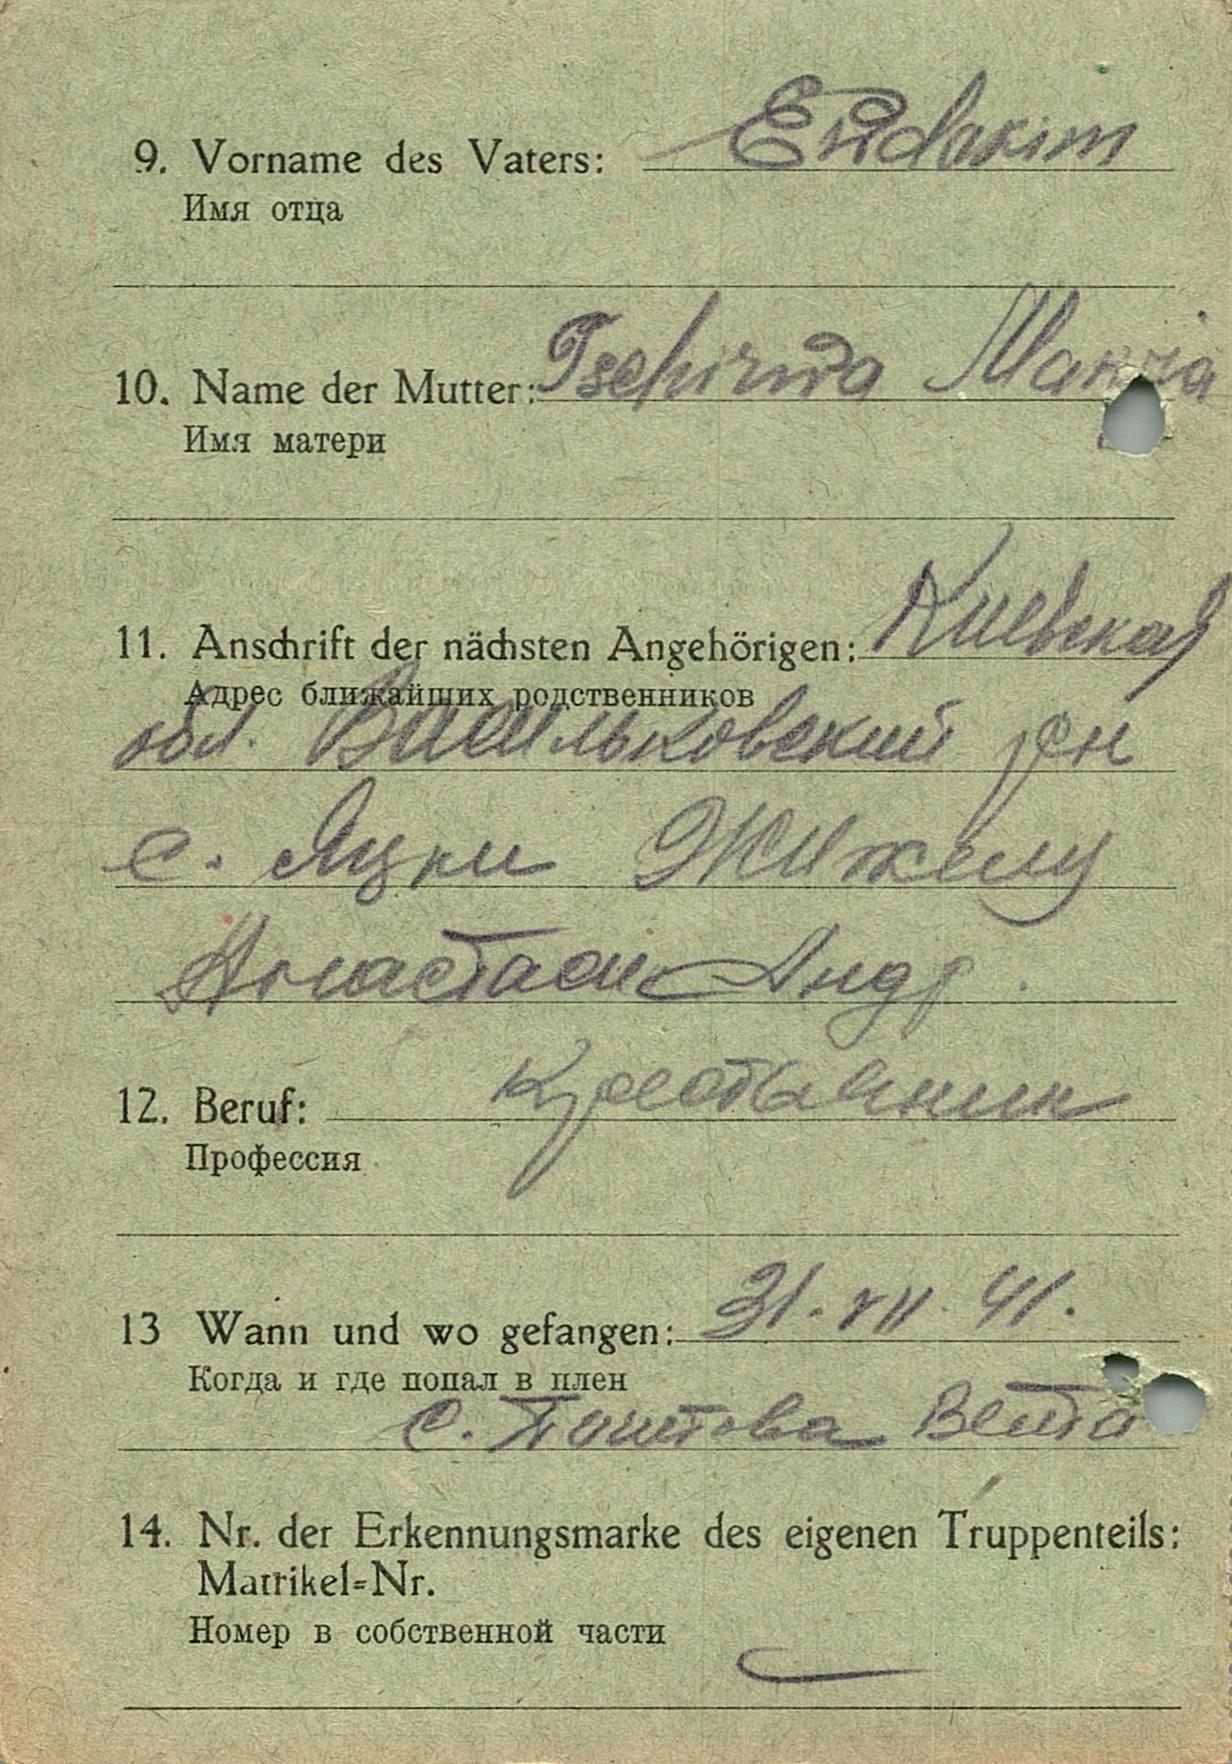 9. Vorname des Vaters: Ewdokim
Имя отца
10. Name der Mutter: Maria
Имя матери
11. Anschrift der nächsten Angehörigen: Киевская
Адрес ближайших родственников
обл. Васильковский р-н
с. Яцки
Анастасии Андр.
12. Beruf: Крестьянин
Профессия
13 Wann und wo gefangen: 31. VII. 41.
Когда и где попал в плен
с. Поштова Вета
14. Nr. der Erkennungsmarke des eigenen Truppenteils:
Matrikel=Nr.
Номер в собственной части